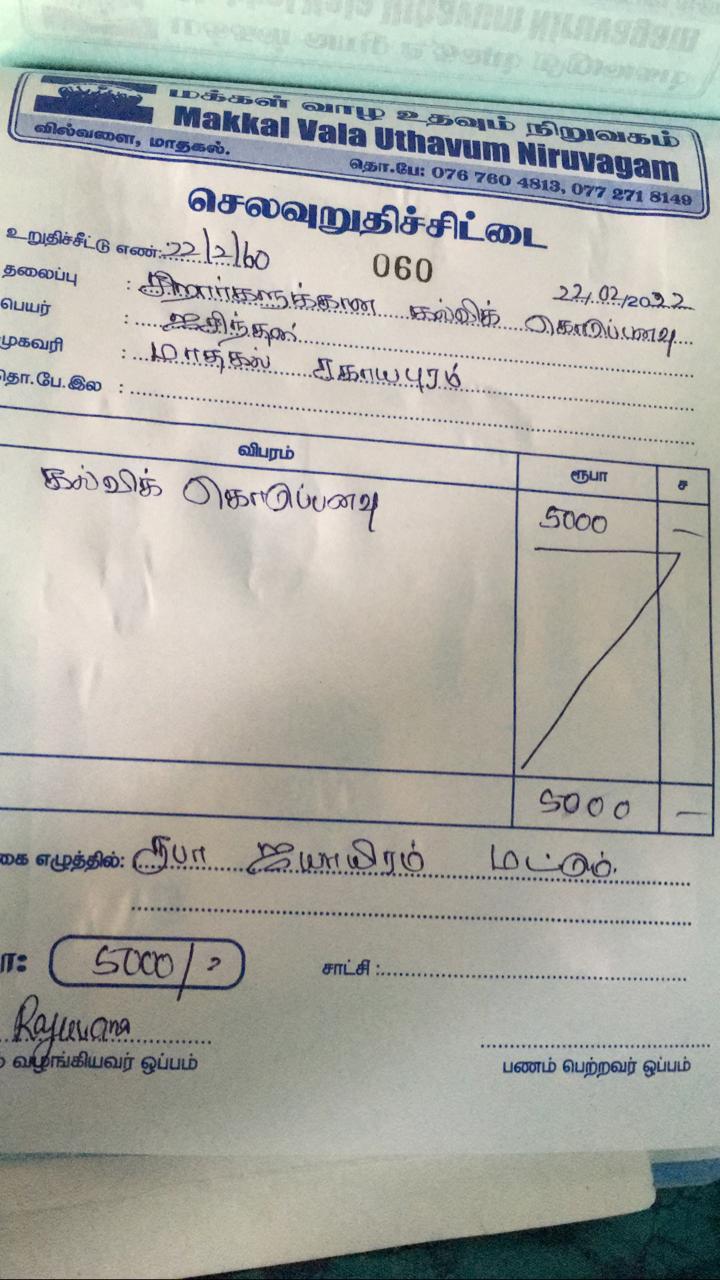 மக்கள் வாழ உதவும் நிறுவகம்
Makkal Vala Uthavum Niruvagam
வில்வளை, மாதகல்.
தொ.பே: 076 760 4813, 077 271 8149
செலவுறுதிச்சிட்டை
உறுதிச்சீட்டு எண்: 22/2/60
060
22/02/2022
தலைப்பு : சிறார்களுக்கான கல்விக் கொடுப்பனவு
பெயர் :
முகவரி : மாதகல் சகாயபுரம்
தொ.பே.இல :
விபரம் ரூபா ச
கல்விக் கொடுப்பனவு 5000 —
5000 —
கை எழுத்தில்: ரூபா ஐயாயிரம் மட்டும்.
5000/
சாட்சி :
வழங்கியவர் ஒப்பம்
பணம் பெற்றவர் ஒப்பம்